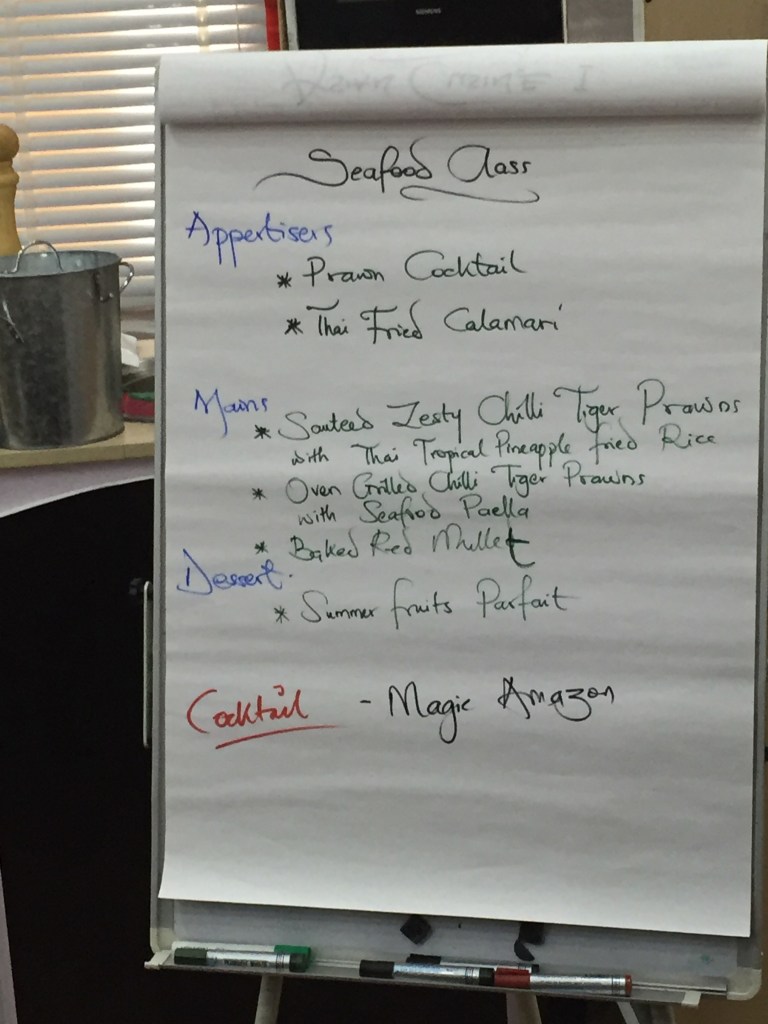 SIEMENS
Seafood Class
Appertisers
* Prawn Cocktail
* Thai Fried Calamari
Mains
* Sauteed Zesty Chilli Tiger Prawns
with Thai Tropical Pineapple fried Rice
* Oven Grilled Chilli Tiger Prawns
with Seafood Paella
* Baked Red Mullet
Dessert.
* Summer fruits Parfait
Cocktail - Magic Amazon